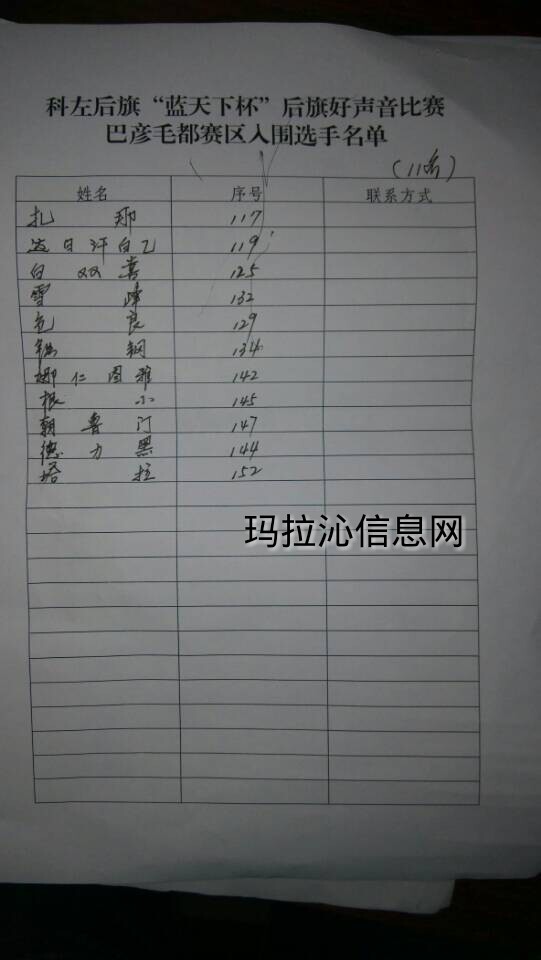 科左后旗“蓝天下杯”后旗好声音比赛
巴彦毛都赛区入围选手名单
(11名)
姓名 序号 联系方式
扎那 117
119
白双喜 125
雪峰 132
包良 129
钢 134
娜仁图雅 142
根小 145
朝鲁门 147
德力黑 144
塔拉 152
玛拉沁信息网